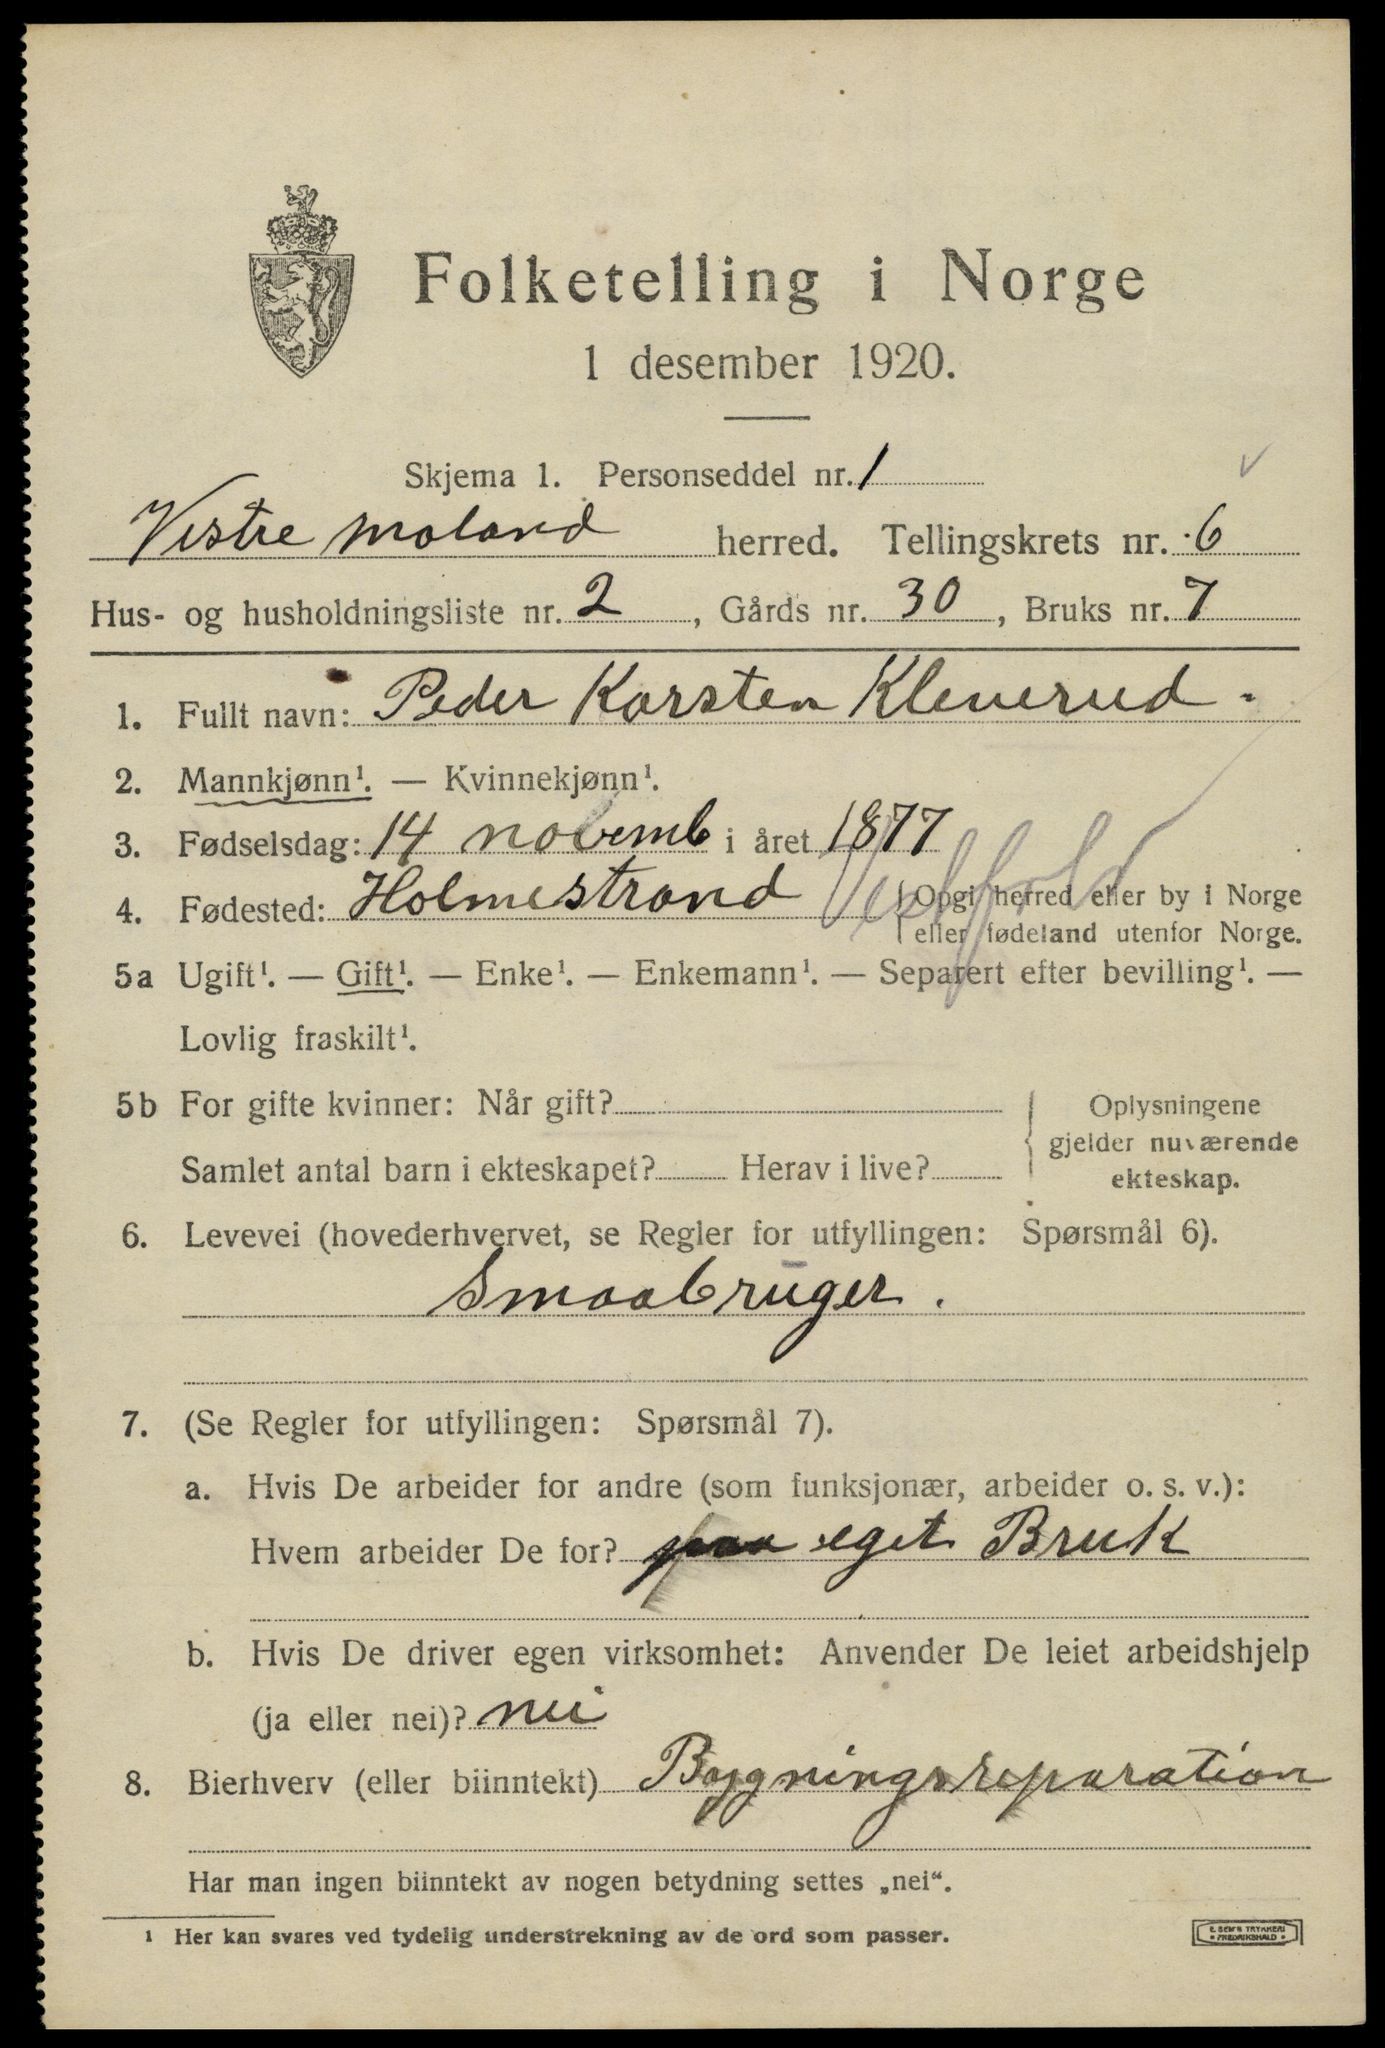 Folketelling i Norge
1 desember 1920.
Skjema 1. Personseddel nr. 1
Vestre Moland herred. Tellingskrets nr. 6
Hus- og husholdningsliste nr. 2, Gårds nr. 30, Bruks nr. 7
1. Fullt navn: Peder Karsten Kleverud
2. Mannkjønn¹. — Kvinnekjønn¹.
3. Fødselsdag: 14 novemb i året 1877
4. Fødested: Holmestrand Vestfold { Opgi herred eller by i Norge
eller fødeland utenfor Norge.
5a Ugift¹. — Gift¹. — Enke¹. — Enkemann¹. — Separert efter bevilling¹. —
Lovlig fraskilt¹.
5b For gifte kvinner: Når gift? { Oplysningene
gjelder nuværende
Samlet antal barn i ekteskapet? Herav i live? ekteskap.
6. Levevei (hovederhvervet, se Regler for utfyllingen: Spørsmål 6).
Smaabruger.
7. (Se Regler for utfyllingen: Spørsmål 7).
a. Hvis De arbeider for andre (som funksjonær, arbeider o. s. v.):
Hvem arbeider De for? paa eget Bruk
b. Hvis De driver egen virksomhet: Anvender De leiet arbeidshjelp
(ja eller nei)? nei
8. Bierhverv (eller biinntekt) Bygningsreparation
Har man ingen biinntekt av nogen betydning settes „nei“.
¹ Her kan svares ved tydelig understrekning av de ord som passer.
E. SEM'S TRYKKERI
* FREDRIKSHALD *